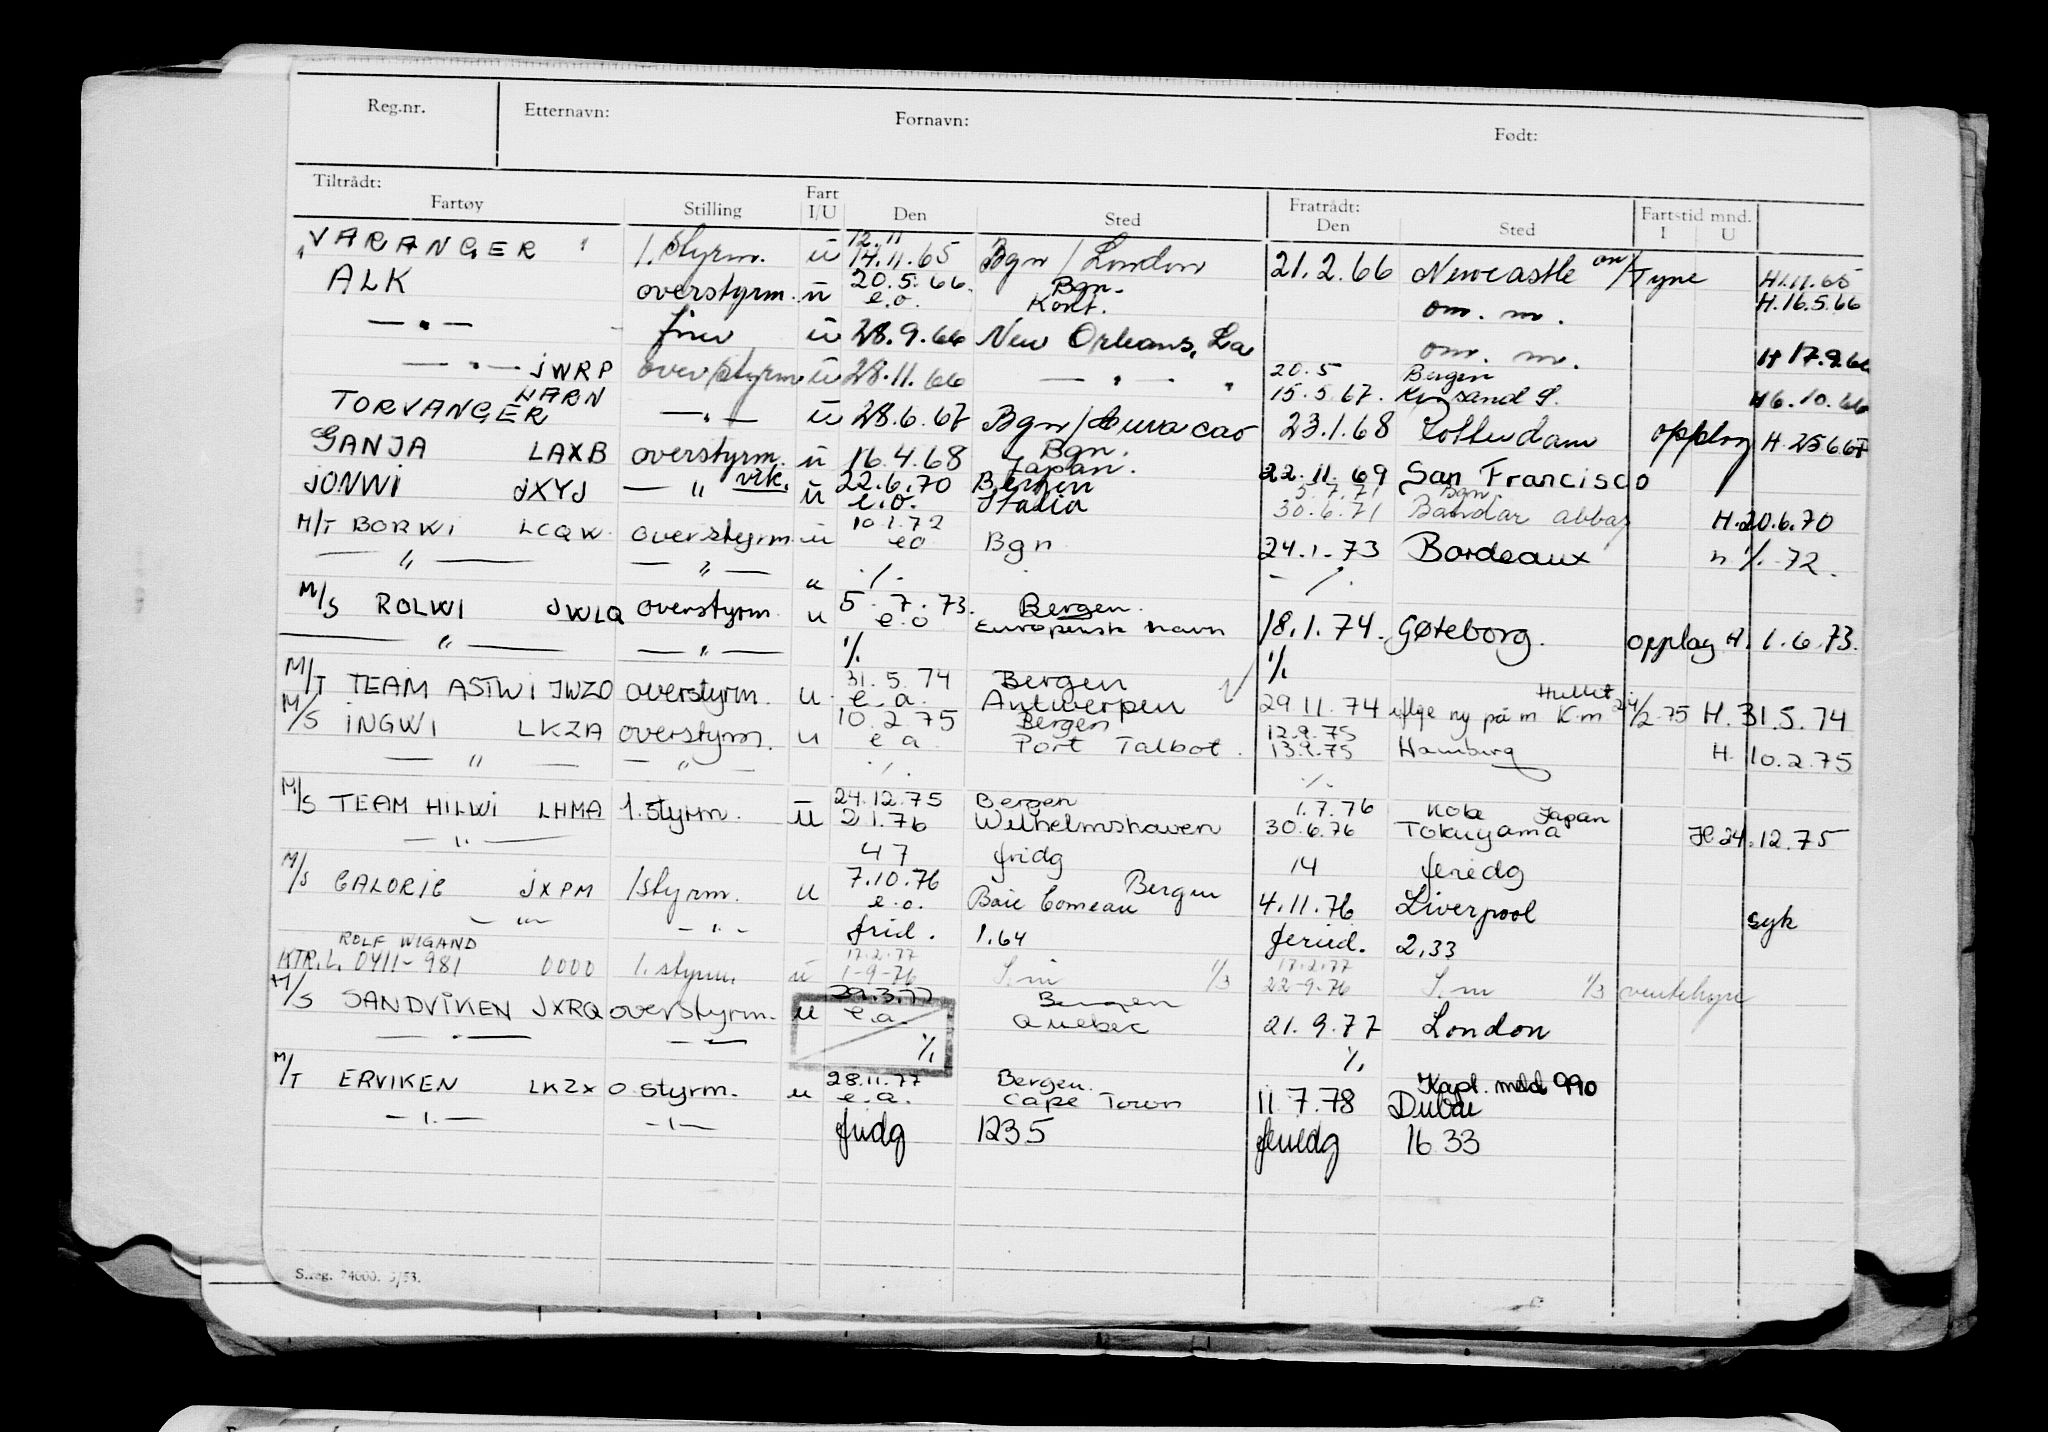 Reg.nr. Etternavn: Fornavn: Født:
Tiltrådt: Fartøy Stilling Fart I/U Den Sted Fratrådt: Den Sted Fartstid mnd. I U
12.11
VARANGER 1. Styrm. ū 14.11.65 Bgn / London 21.2.66 Newcastle on/Tyne H.11.65
ALK overstyrm. ū 20.5.66. Bgn. H.16.5.66
e.o. Kont. om. m.
— " — ū 28.9.66 New Orleans, La om. m. H 17.9.66
— " — JWRP overstyrm ū 28.11.66 — " — " 20.5 Bergen
HARN 15.5.67. Kr.sand S. H6.10.66
TORVANGER — " — ū 28.6.67 Bgn / Curacao 23.1.68 Rotterdam opplag H.25667
GANJA LAXB overstyrm. ū 16.4.68 Bgn. Japan. 22.11.69 San Francisco
JONWI JXYJ — " — vik. ū 22.6.70 Bergen 5.7.71 Bgn
e.o. Italia 30.6.71 Bandar abbas H.20.6.70
M/T BORWI LCQW overstyrm ū 10.1.72 e o Bgn 24.1.73 Bordeaux n ./. 72.
— " — — " — u ./. — ./.
M/S ROLWI JWLQ overstyrm. u 5.7.73. Bergen.
e.o Europeisk havn 18.1.74. Gøteborg. opplag H. 1.6.73.
— " — — " — ./. ./.
M/T TEAM ASTWI JWZO overstyrm. u 31.5.74 Bergen
e.a. Antwerpen 29.11.74 iflge ny på m K.m 24/2.75 H.31.5.74
M/S INGWI LKZA overstyrm. u 10.2.75 Bergen 12.9.75
e a Port Talbot. 13.9.75 Hamburg H. 10.2.75
— " — — " — ./. ./.
M/S TEAM HILWI LHMA 1.styrm. ū 24.12.75 Bergen 1.7.76 Kobe Japan
2 1.76 Wilhelmshaven 30.6.76 Tokuyama H.24.12.75
— " — 47 fridg 14 feriedg
M/S CALORIC JXPM 1styrm. u 7.10.76 Bergen
e.o. Baie Comeau 4.11.76 Liverpool syk
— " — — " — frid. 1.64 feried. 2.33
ROLF WIGAND 17.2.77 17.2.77
KTR.L. 0411-981 0000 1. styrm. ū 1-9-76 S.m 1/3 22-9-76 S.m 1/3 ventehyre
M/S SANDVIKEN JXRQ overstyrm. u 29.3.77 Bergen
e.a. Quebec 21.9.77 London
— " — — " — ./. ./.
M/T ERVIKEN LKZX o.styrm. u 28.11.77 Bergen. Kapt. meld 990
e.a. Cape Town 11.7.78 Dubai
— " — — " — fridg 1235 feriedg 16 33
S.reg. 74000. 5/53.